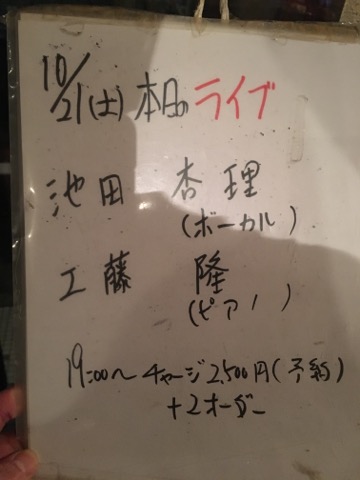 10/21(土) 本日のライブ
池田 杏理
(ボーカル)
工藤 隆
(ピアノ)
19:00〜 チャージ2,500円(予約)
+2オーダー